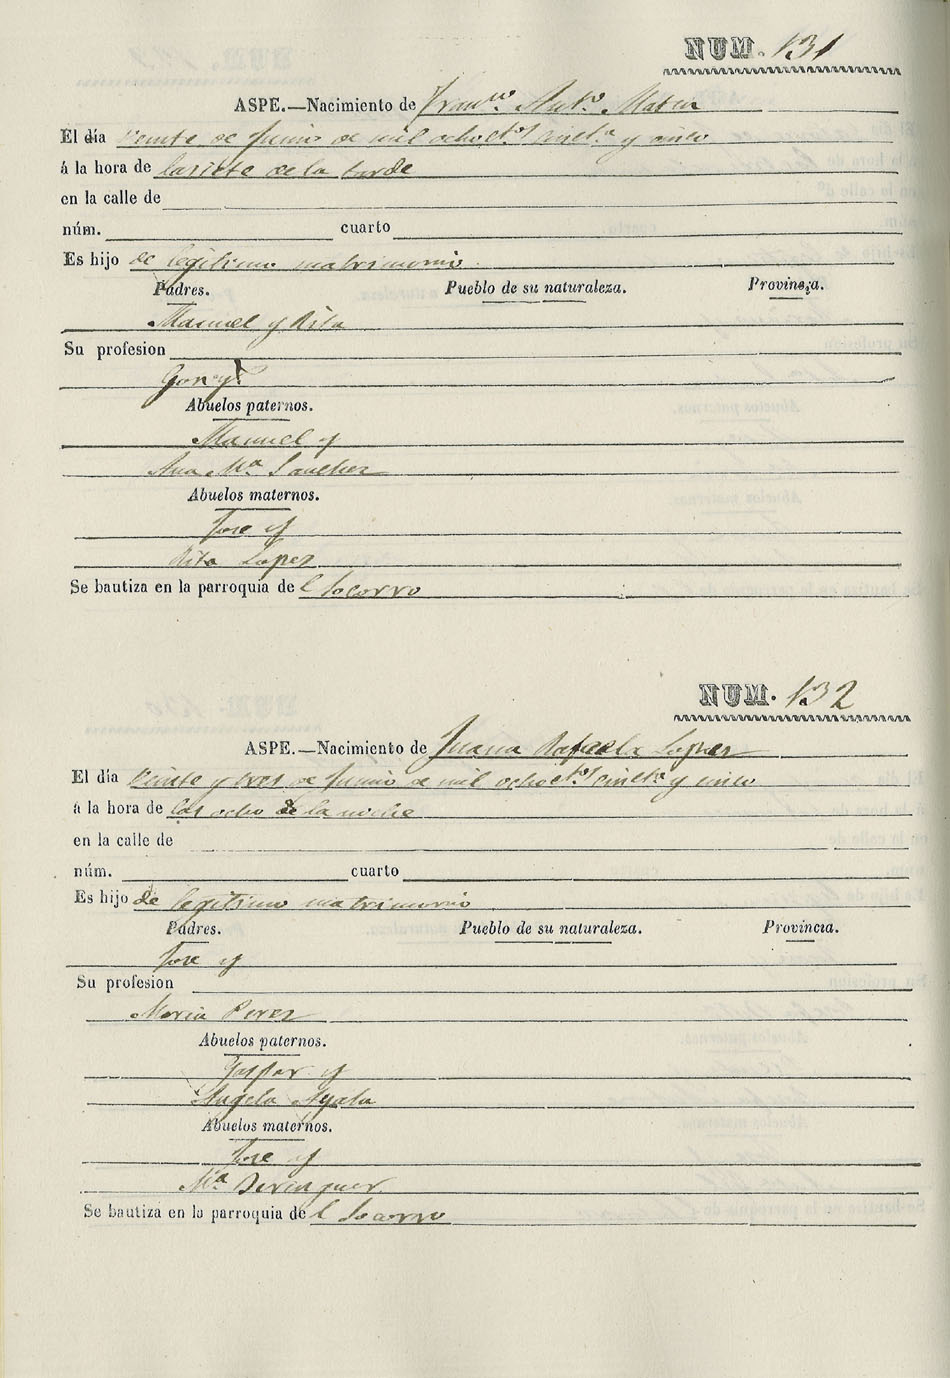 NUM. 131
ASPE.—Nacimiento de Franco Anto Mateu
El día veinte de Junio de mil ochoctos cincta y cinco
á la hora de las siete de la tarde
en la calle de
núm. cuarto
Es hijo de legitimo matrimonio
Padres. Pueblo de su naturaleza. Provincia.
Manuel y Rita
Su profesion
Abuelos paternos.
Manuel y
Ana Ma Sanchez
Abuelos maternos.
Jose y
Rita Lopez
Se bautiza en la parroquia del Socorro
NUM. 132
ASPE.—Nacimiento de Juana Rafaela Lopez
El día veinte y tres de Junio de mil ochoctos cincta y cinco
á la hora de las ocho de la noche
en la calle de
núm. cuarto
Es hijo de legitimo matrimonio
Padres. Pueblo de su naturaleza. Provincia.
Jose y
Su profesion
Maria Perez
Abuelos paternos.
Gaspar y
Angela Ayala
Abuelos maternos.
Jose y
Ma Berenguer
Se bautiza en la parroquia del Socorro